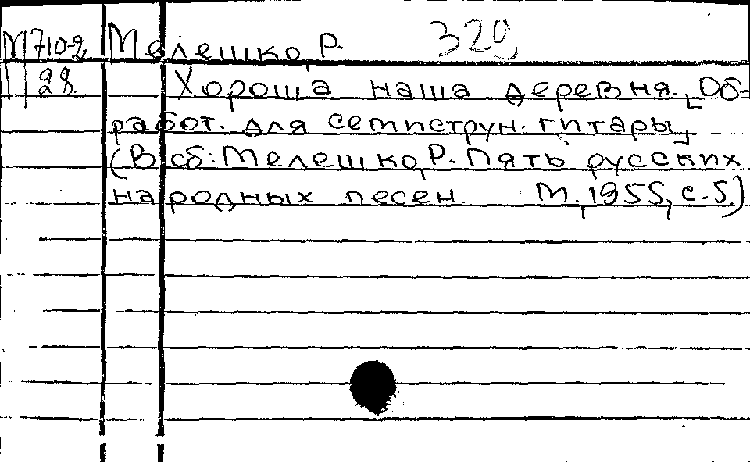 М710-2 Мелешко, Р. 320
11 28 Хороша наша деревня. [Об-
работ. для семиструн. гитары]
(В сб: Мелешко, Р. Пять русских
народных песен. М., 1955, с. 5.)